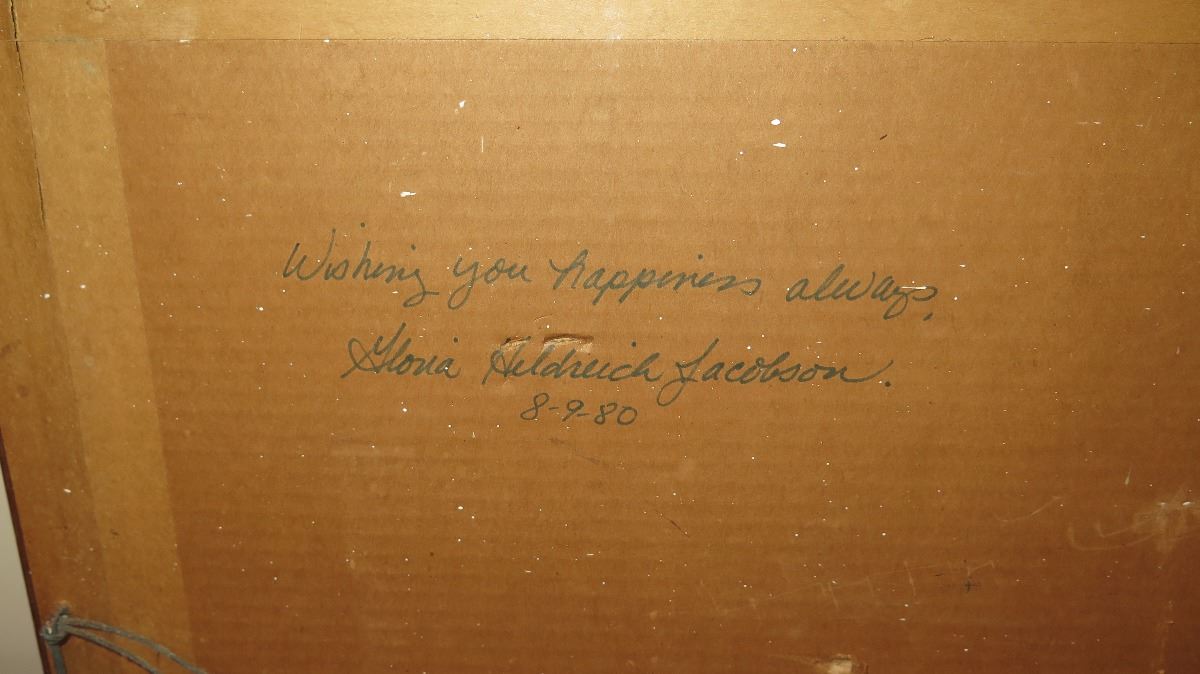 Wishing you happiness always,
Gloria Heldreich Jacobson.
8-9-80